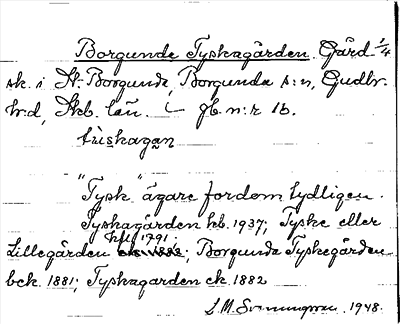 Borgunda Tyskagården. Gård 1/4
sk. i St. Borgunda, Borgunda s:n, Gudhs.
h:d, Skb. län. – jb. n:r 1b.
tùskagan
"Tysk" ägare fordom tydligen.
Tyskagården hb. 1937; Tyske eller
hfl 1791;
Lillegården; Borgunda Tyskegården
bck. 1881; Tyskagarden ck 1882
L.M. Svanungson. 1948.